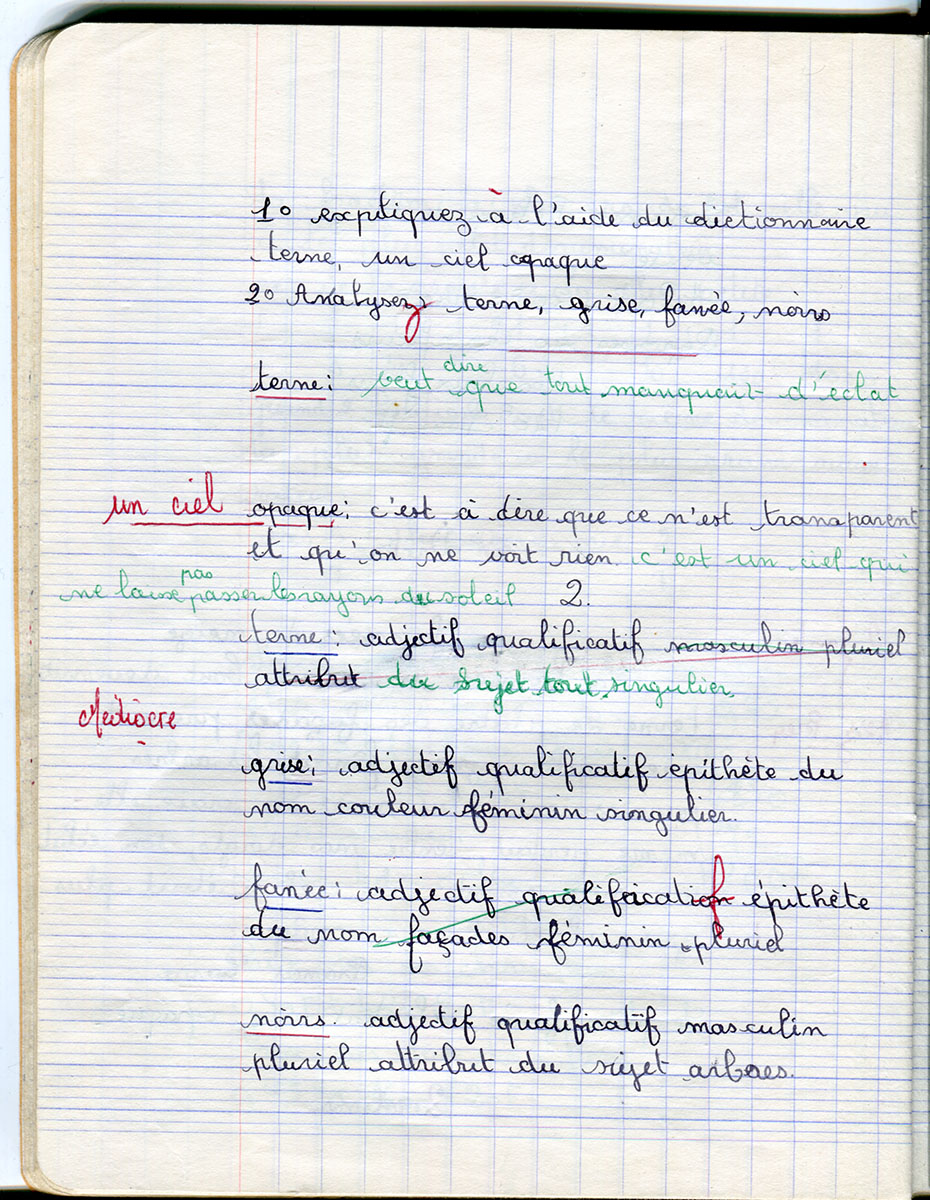 1o expliquez à l'aide du dictionnaire
terne, un ciel opaque
2o Analysez terne, grise, fanée, noirs
dire
terne : veut que tout manquait d'éclat
un ciel opaque : c'est à dire que ce n'est transparent
et qu'on ne voit rien. c'est un ciel qui
pas
ne laisse passer les rayons du soleil 2.
terne : adjectif qualificatif masculin pluriel
attribut du sujet tout singulier
Médiocre
grise : adjectif qualificatif épithète du
nom couleur féminin singulier.
fanée : adjectif qualificatif épithète
du nom façades féminin pluriel
noirs. adjectif qualificatif masculin
pluriel attribut du sujet arbres.